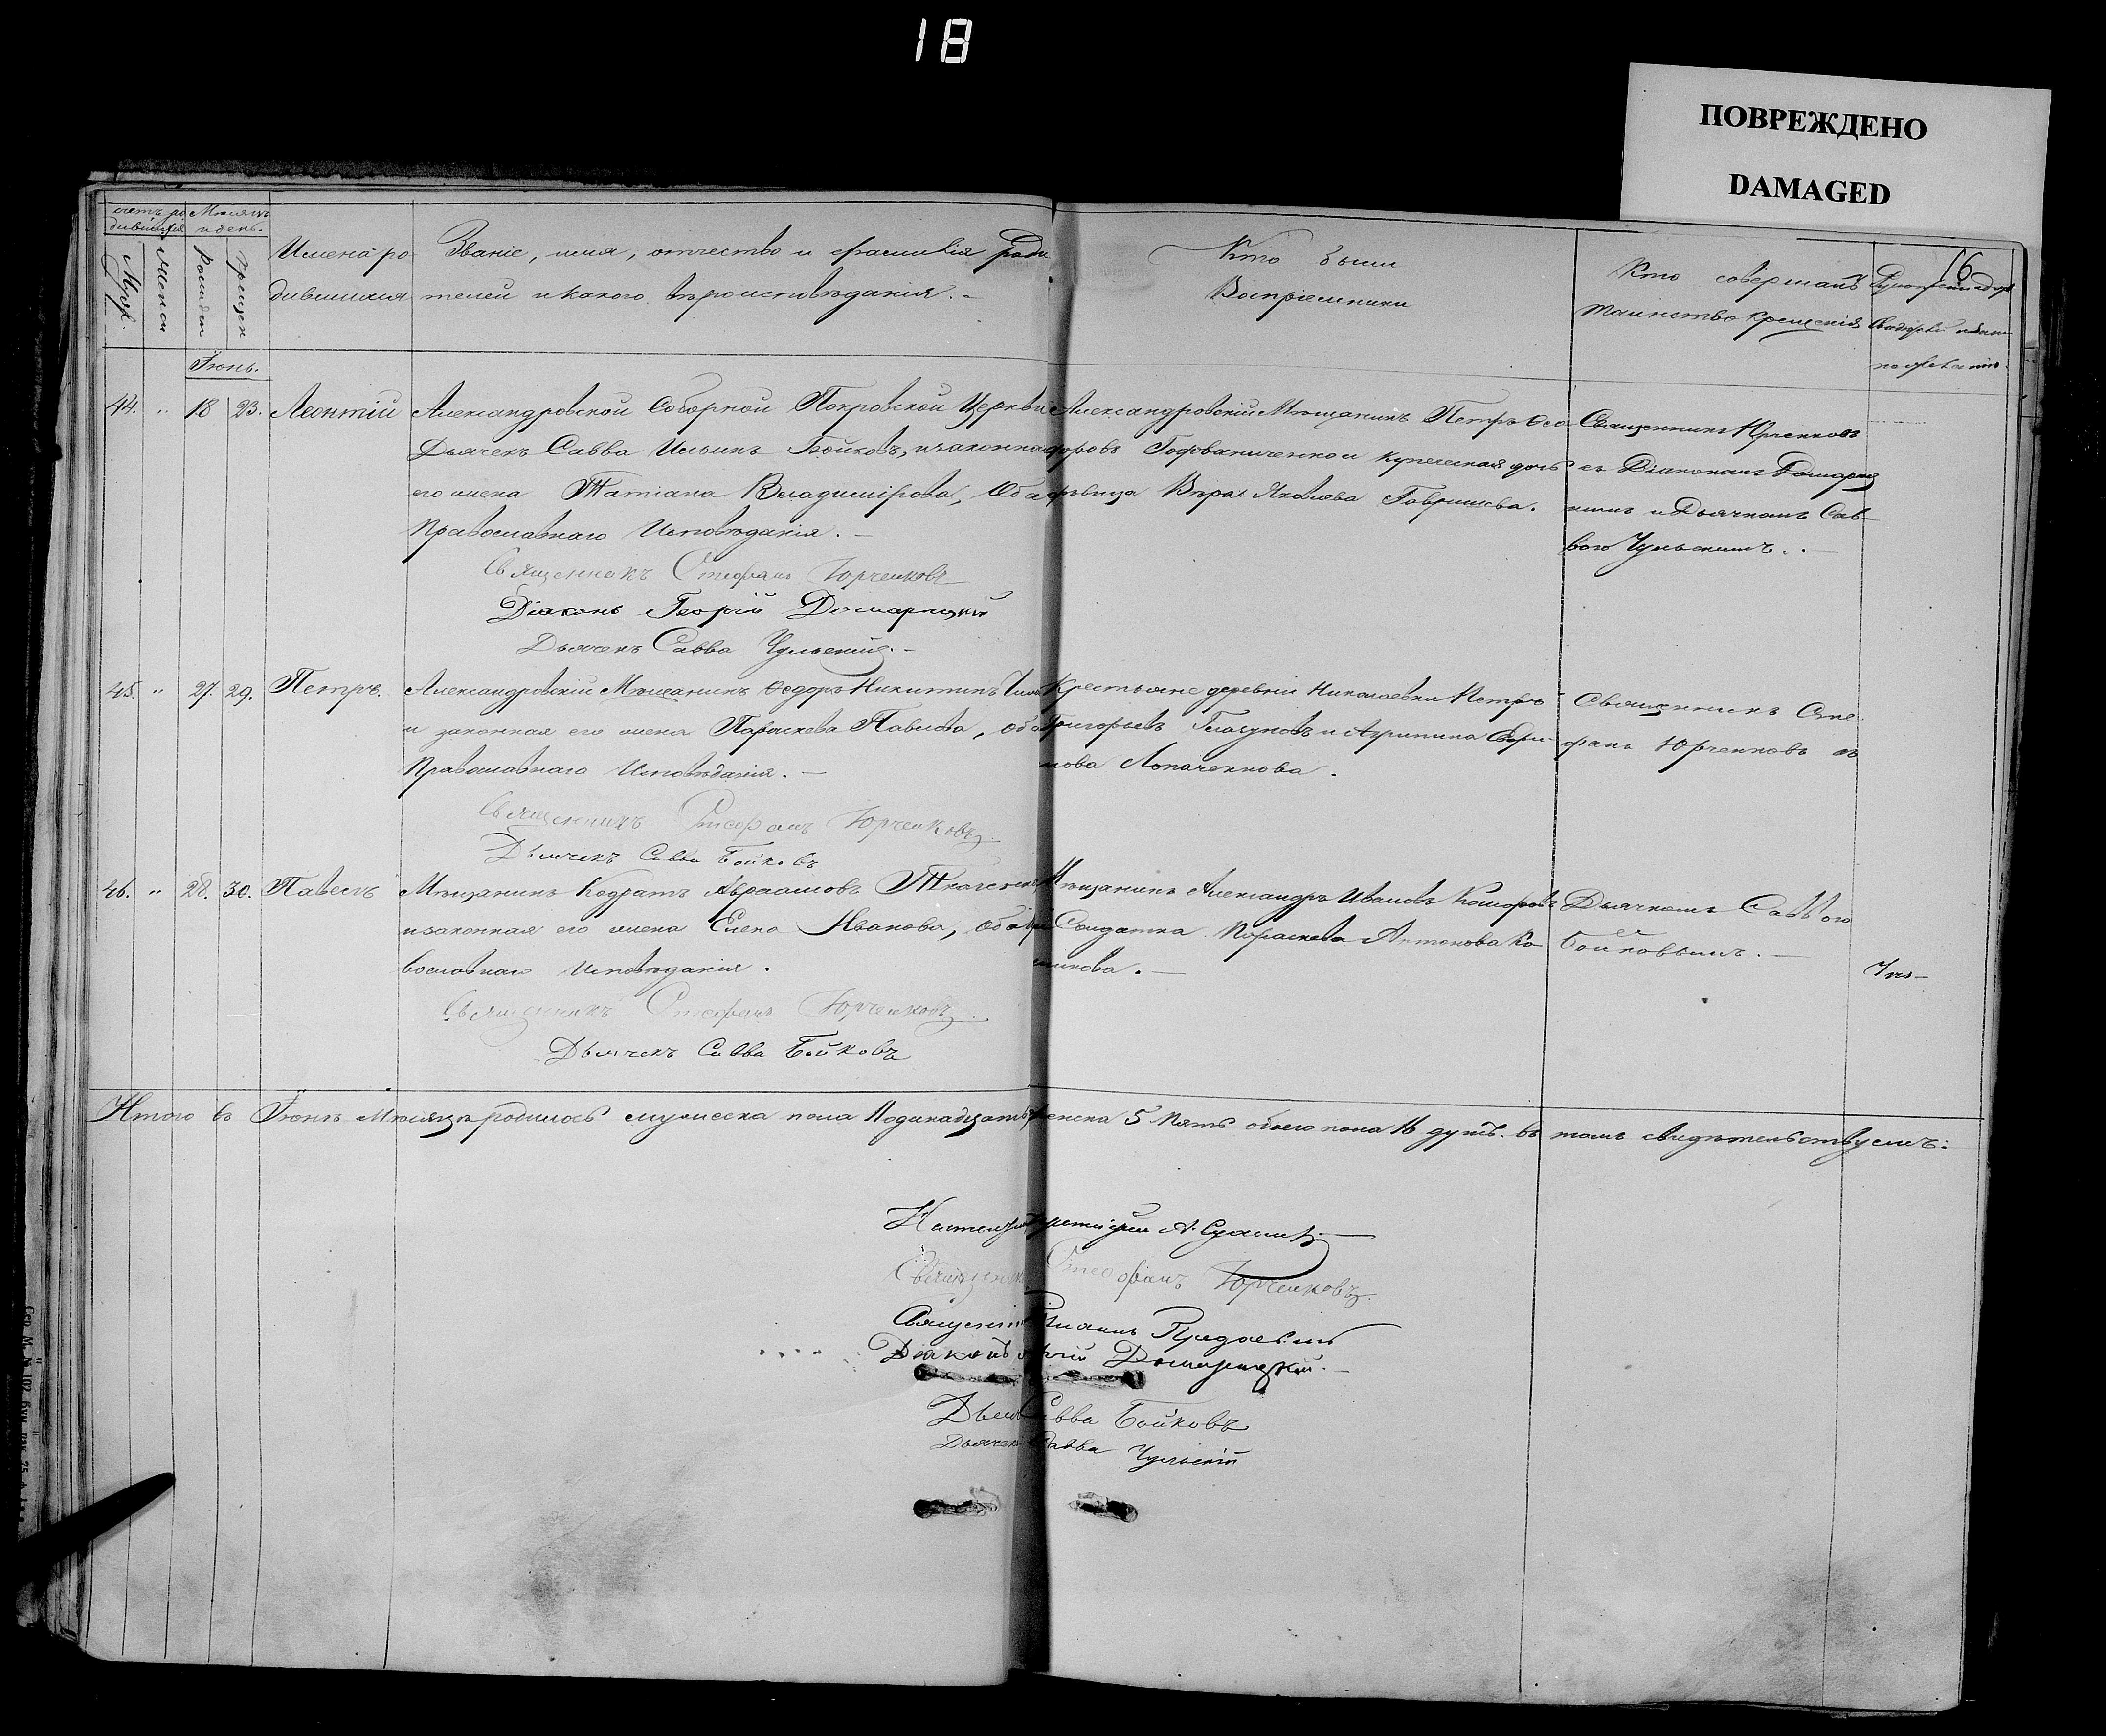 18
ПОВРЕЖДЕНО
DAMAGED
16
Счетъ ро
дившихся
Мѣсяцъ
и день.
Муж.
Женск
рожден
крещен
Имена ро
дившихся
Званіе, имя, отчество и фамилія роди
телей и какого вѣроисповѣданія. –
Кто были
Воспріемники
Кто совершалъ
таинство крещенія
Іюнь.
44. " 18 23. Леонтій
Александровской Соборной Покровской Церкви
Дьячекъ Савва Ильинъ Бойковъ, и законная
его жена Татіана Владимірова, Оба
Православнаго Исповѣданія. –
Священникъ Стефанъ Юрченковъ
Діаконъ Георгій Домарицкій
Дьячекъ Савва Чульскій. –
Александровскій Мѣщанинъ Петръ Ѳео
доровъ и купеческая дочь
дѣвица Вѣра Яковлева Гаврикова.
Священникъ Юрченковъ
съ Діакономъ Домариц
кимъ и Дьячкомъ Сав–
вою Чульскимъ. –
45. " 27. 29. Петръ.
Александровскій Мѣщанинъ Ѳедоръ Никитинъ
и законная его жена Параскева Павлова, оба
Православнаго Исповѣданія. –
Священникъ Стефанъ Юрченковъ
Дьячекъ Савва Бойковъ
Крестьяне деревни Николаевки Петръ
Григорьевъ Гласуновъ и Агрипина Ефи–
мова Лопаченкова.
Священникъ Сте
фанъ Юрченковъ съ
46. " 28. 30. Павелъ
Мѣщанинъ Кодратъ Авраамовъ
и законная его жена Елена Иванова, оба пра
вославнаго Исповѣданія.
Священникъ Стефанъ Юрченковъ
Дьячекъ Савва Бойковъ
Мѣщанинъ Александръ Ивановъ Комаровъ
Солдатка Параскева Антонова Ко
шкова. –
Дьячкомъ Саввою
Бойковымъ. –
Итого въ Іюнѣ Мѣсяцѣ родилось мужеска пола 11 одинадцать женска 5 Пять обоего пола 16 душъ. въ томъ свидѣтельствуемъ:
Священникъ Стефанъ Юрченковъ.
Священникъ Іоаннъ
Діаконъ Георгій Домарицкій. –
Дьячекъ Савва Бойковъ
Дьячекъ Савва Чульскій